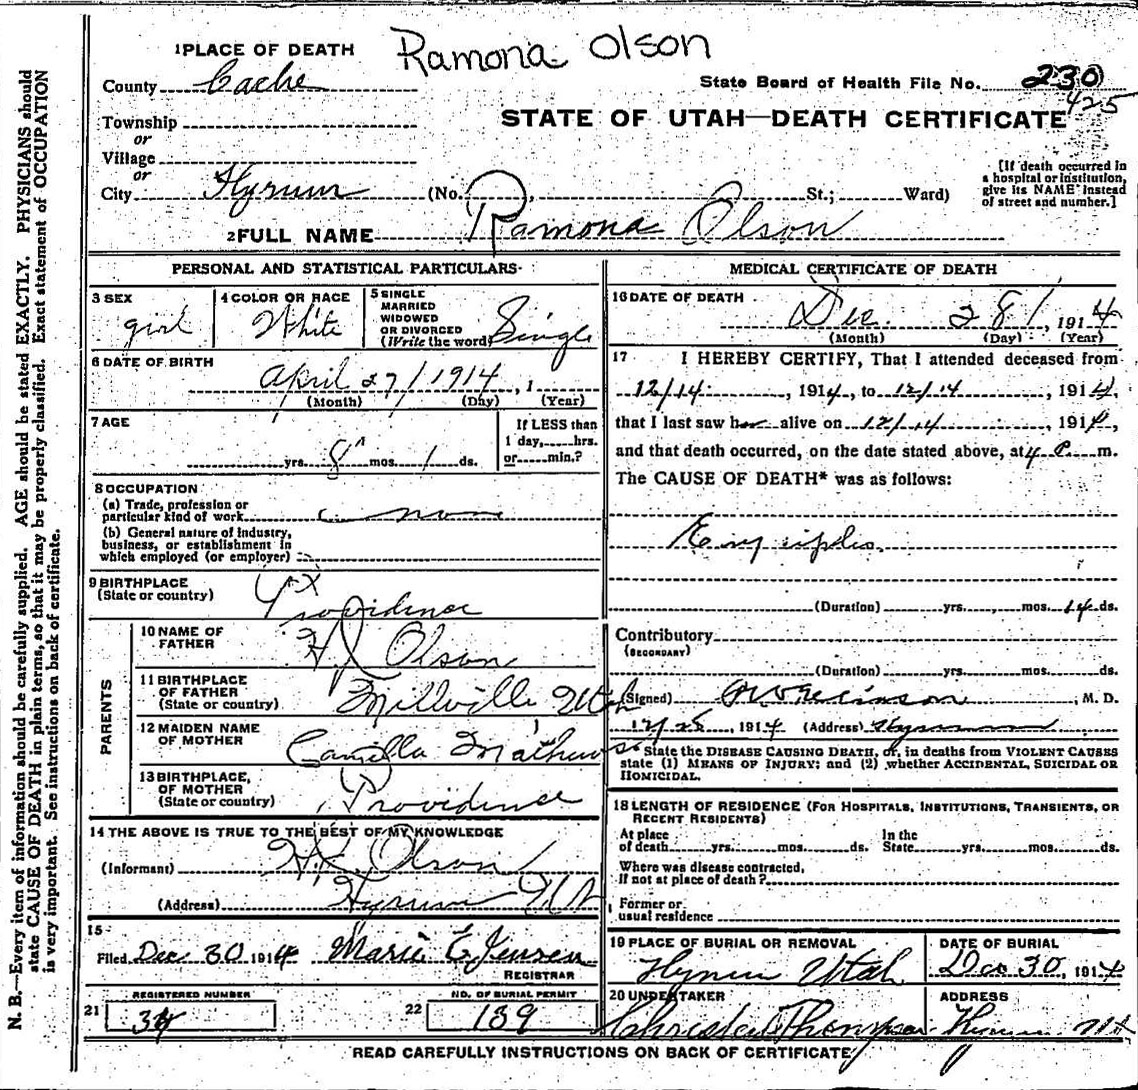 Ramona Olson
1 PLACE OF DEATH
County Cache
State Board of Health File No. 230
425
Township
or
Village
or
City Hyrum (No. St.; Ward)
STATE OF UTAH—DEATH CERTIFICATE
[If death occurred in
a hospital or institution,
give its NAME instead
of street and number.]
2 FULL NAME Ramona Olson
PERSONAL AND STATISTICAL PARTICULARS
3 SEX
girl
4 COLOR OR RACE
White
5 SINGLE
MARRIED
WIDOWED
OR DIVORCED
(Write the word) Single
6 DATE OF BIRTH
April 27/1914, 1
(Month) (Day) (Year)
7 AGE
yrs. 8 mos. 1 ds.
If LESS than
1 day, hrs.
or min.?
8 OCCUPATION
(a) Trade, profession or
particular kind of work none
(b) General nature of industry,
business, or establishment in
which employed (or employer)
9 BIRTHPLACE
(State or country)
Providence
PARENTS
10 NAME OF
FATHER
Olson
11 BIRTHPLACE
OF FATHER
(State or country)
Millville Utah
12 MAIDEN NAME
OF MOTHER
Camilla Mathews
13 BIRTHPLACE,
OF MOTHER
(State or country)
Providence
14 THE ABOVE IS TRUE TO THE BEST OF MY KNOWLEDGE
(Informant) Olson
(Address) Hyrum
15
Filed Dec. 30 1914 Marie E Jensen
REGISTRAR
REGISTERED NUMBER
21
NO. OF BURIAL PERMIT
22 139
MEDICAL CERTIFICATE OF DEATH
16 DATE OF DEATH
Dec. 28/, 1914
(Month) (Day) (Year)
17 I HEREBY CERTIFY, That I attended deceased from
12/14, 1914, to 12/14, 1914,
that I last saw alive on 12/14, 1914,
and that death occurred, on the date stated above, at 4 m.
The CAUSE OF DEATH* was as follows:
Erysipelas
(Duration) yrs. mos. 14 ds.
Contributory
(SECONDARY)
(Duration) yrs. mos. ds.
(Signed) M. D.
1914 (Address) Hyrum
*State the DISEASE CAUSING DEATH, or, in deaths from VIOLENT CAUSES
state (1) MEANS OF INJURY; and (2) whether ACCIDENTAL, SUICIDAL OR
HOMICIDAL.
18 LENGTH OF RESIDENCE (FOR HOSPITALS, INSTITUTIONS, TRANSIENTS, OR
RECENT RESIDENTS)
At place
of death yrs. mos. ds.
In the
State yrs. mos. ds.
Where was disease contracted,
If not at place of death?
Former or
usual residence
19 PLACE OF BURIAL OR REMOVAL
Hyrum Utah
DATE OF BURIAL
Dec 30, 1914
20 UNDERTAKER
ADDRESS
Hyrum
READ CAREFULLY INSTRUCTIONS ON BACK OF CERTIFICATE
N. B.—Every item of information should be carefully supplied. AGE should be stated EXACTLY. PHYSICIANS should
state CAUSE OF DEATH in plain terms, so that it may be properly classified. Exact statement of OCCUPATION
is very important. See instructions on back of certificate.